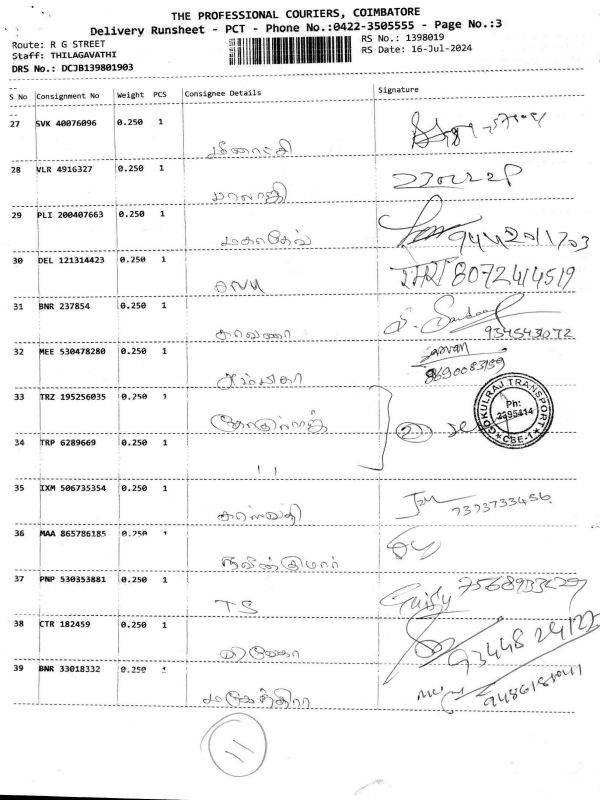 THE PROFESSIONAL COURIERS, COIMBATORE
Delivery Runsheet - PCT - Phone No.:0422-3505555 - Page No.:3
Route: R G STREET
Staff: THILAGAVATHI
DRS No.: DCJB139801903
RS No.: 1398019
RS Date: 16-Jul-2024
S No Consignment No Weight PCS Consignee Details Signature
27 SVK 40076096 0.250 1 மீனாட்சி
28 VLR 4916327 0.250 1 பாலாஜி
29 PLI 200407663 0.250 1 மகாதேவ்
30 DEL 121314423 0.250 1 8072414519
31 BNR 237854 0.250 1 சரவணா 934543072
32 MEE 530478280 0.250 1 அம்பிகா Sarvan
8690083159
33 TRZ 195256035 0.250 1 கோகுல்ராஜ் 2
GOKULRAJ TRANSPORT
Ph:
2395414
CBE-1
34 TRP 6289669 0.250 1 ''
35 IXM 506735354 0.250 1 சரஸ்வதி 7373733456
36 MAA 865786185 0.250 1 நவீன்குமார்
37 PNP 530353881 0.250 1 TS
38 CTR 182459 0.250 1 விவேகா
39 BNR 33018332 0.250 1 மகேந்திரா
11